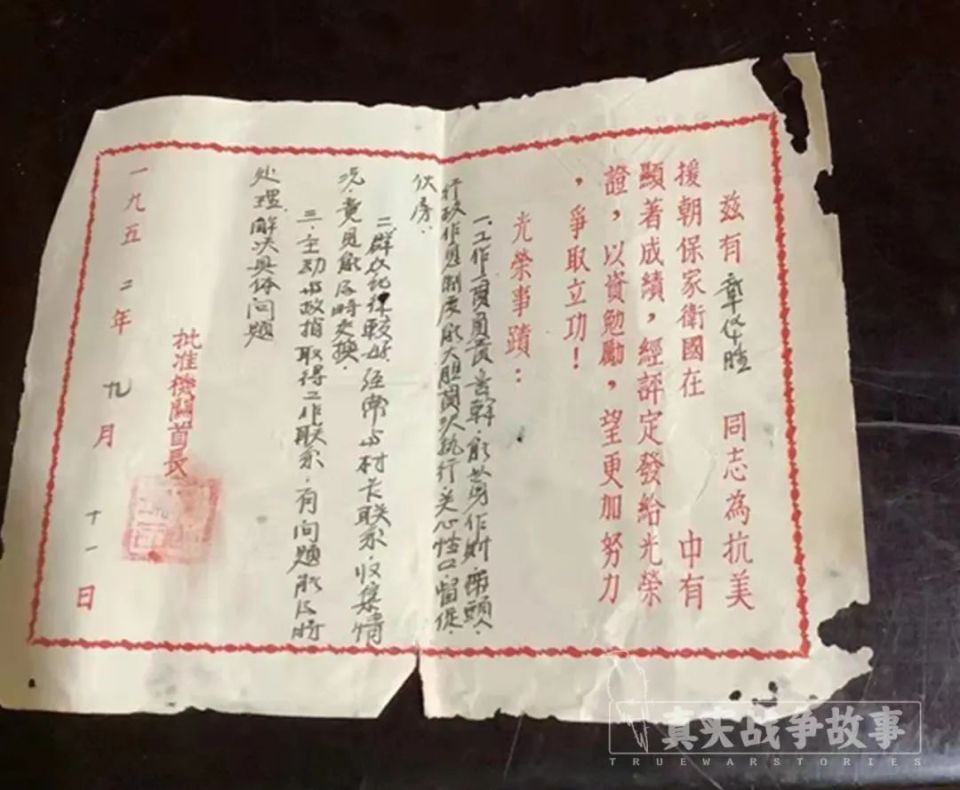 兹有章 同志為抗美
援朝保家衛國在 中有
顯著成績，經評定發給光榮
證，以資勉勵，望更加努力
，爭取立功！
光榮事蹟：
一.工作 负责 苦幹.能以身作則.带頭.
行政作息制度能大胆 执行关心牲口.督促.
伙房.
二.群众纪律較好.经常与村长联系.收集情
况.意见能及时交换.
三.主动与政指取得工作联系.有问题能及时
处理.解决具体问题
批准機關首長
一九五二年九月十一日
真实战争故事
TRUEWARSTORIES